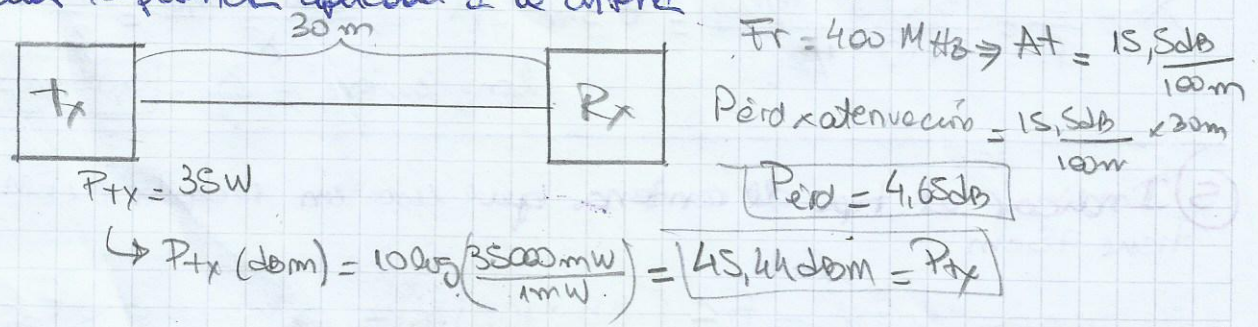 30 m
Tx
Rx
Fr = 400 MHz ⇒ At = 15,5dB/100m
Pérd x atenuación = 15,5dB/100m x 30m
Pérd = 4,65dB
Ptx = 35W
↳ Ptx (dBm) = 10 log (35000mW/1mW) = 45,44dBm = Ptx